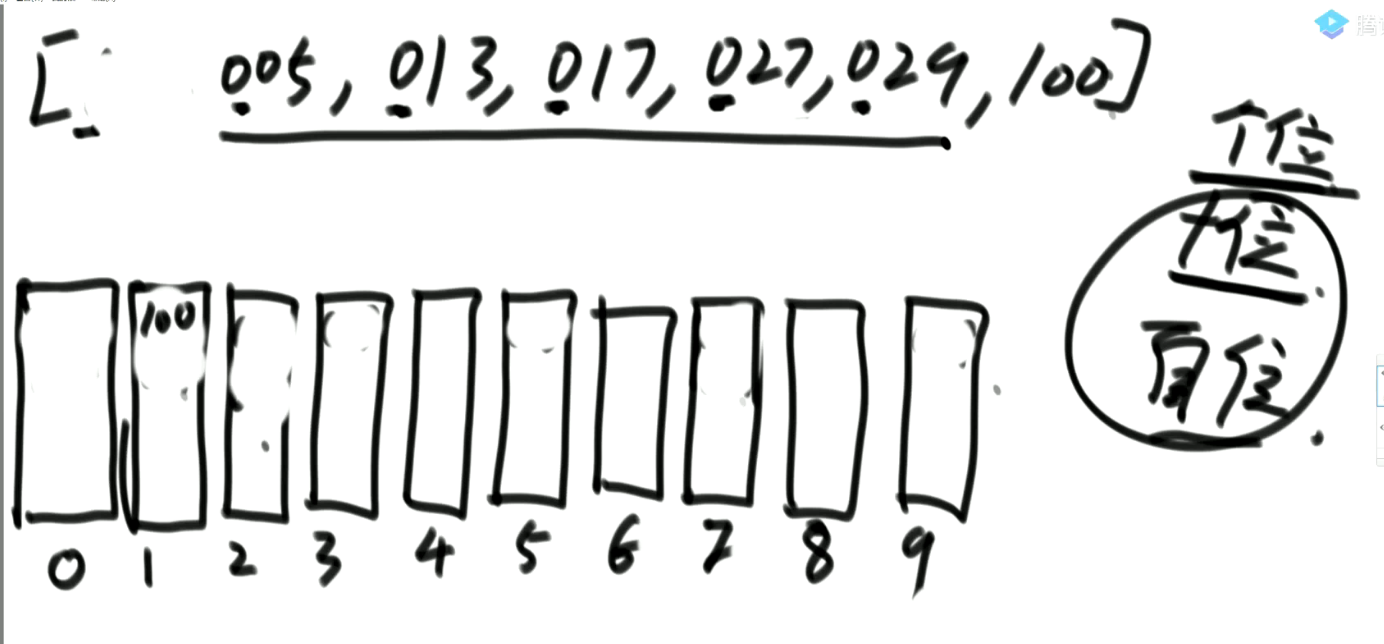 [ 005, 013, 017, 027, 029, 100]
个位
十位
百位
100
0 1 2 3 4 5 6 7 8 9